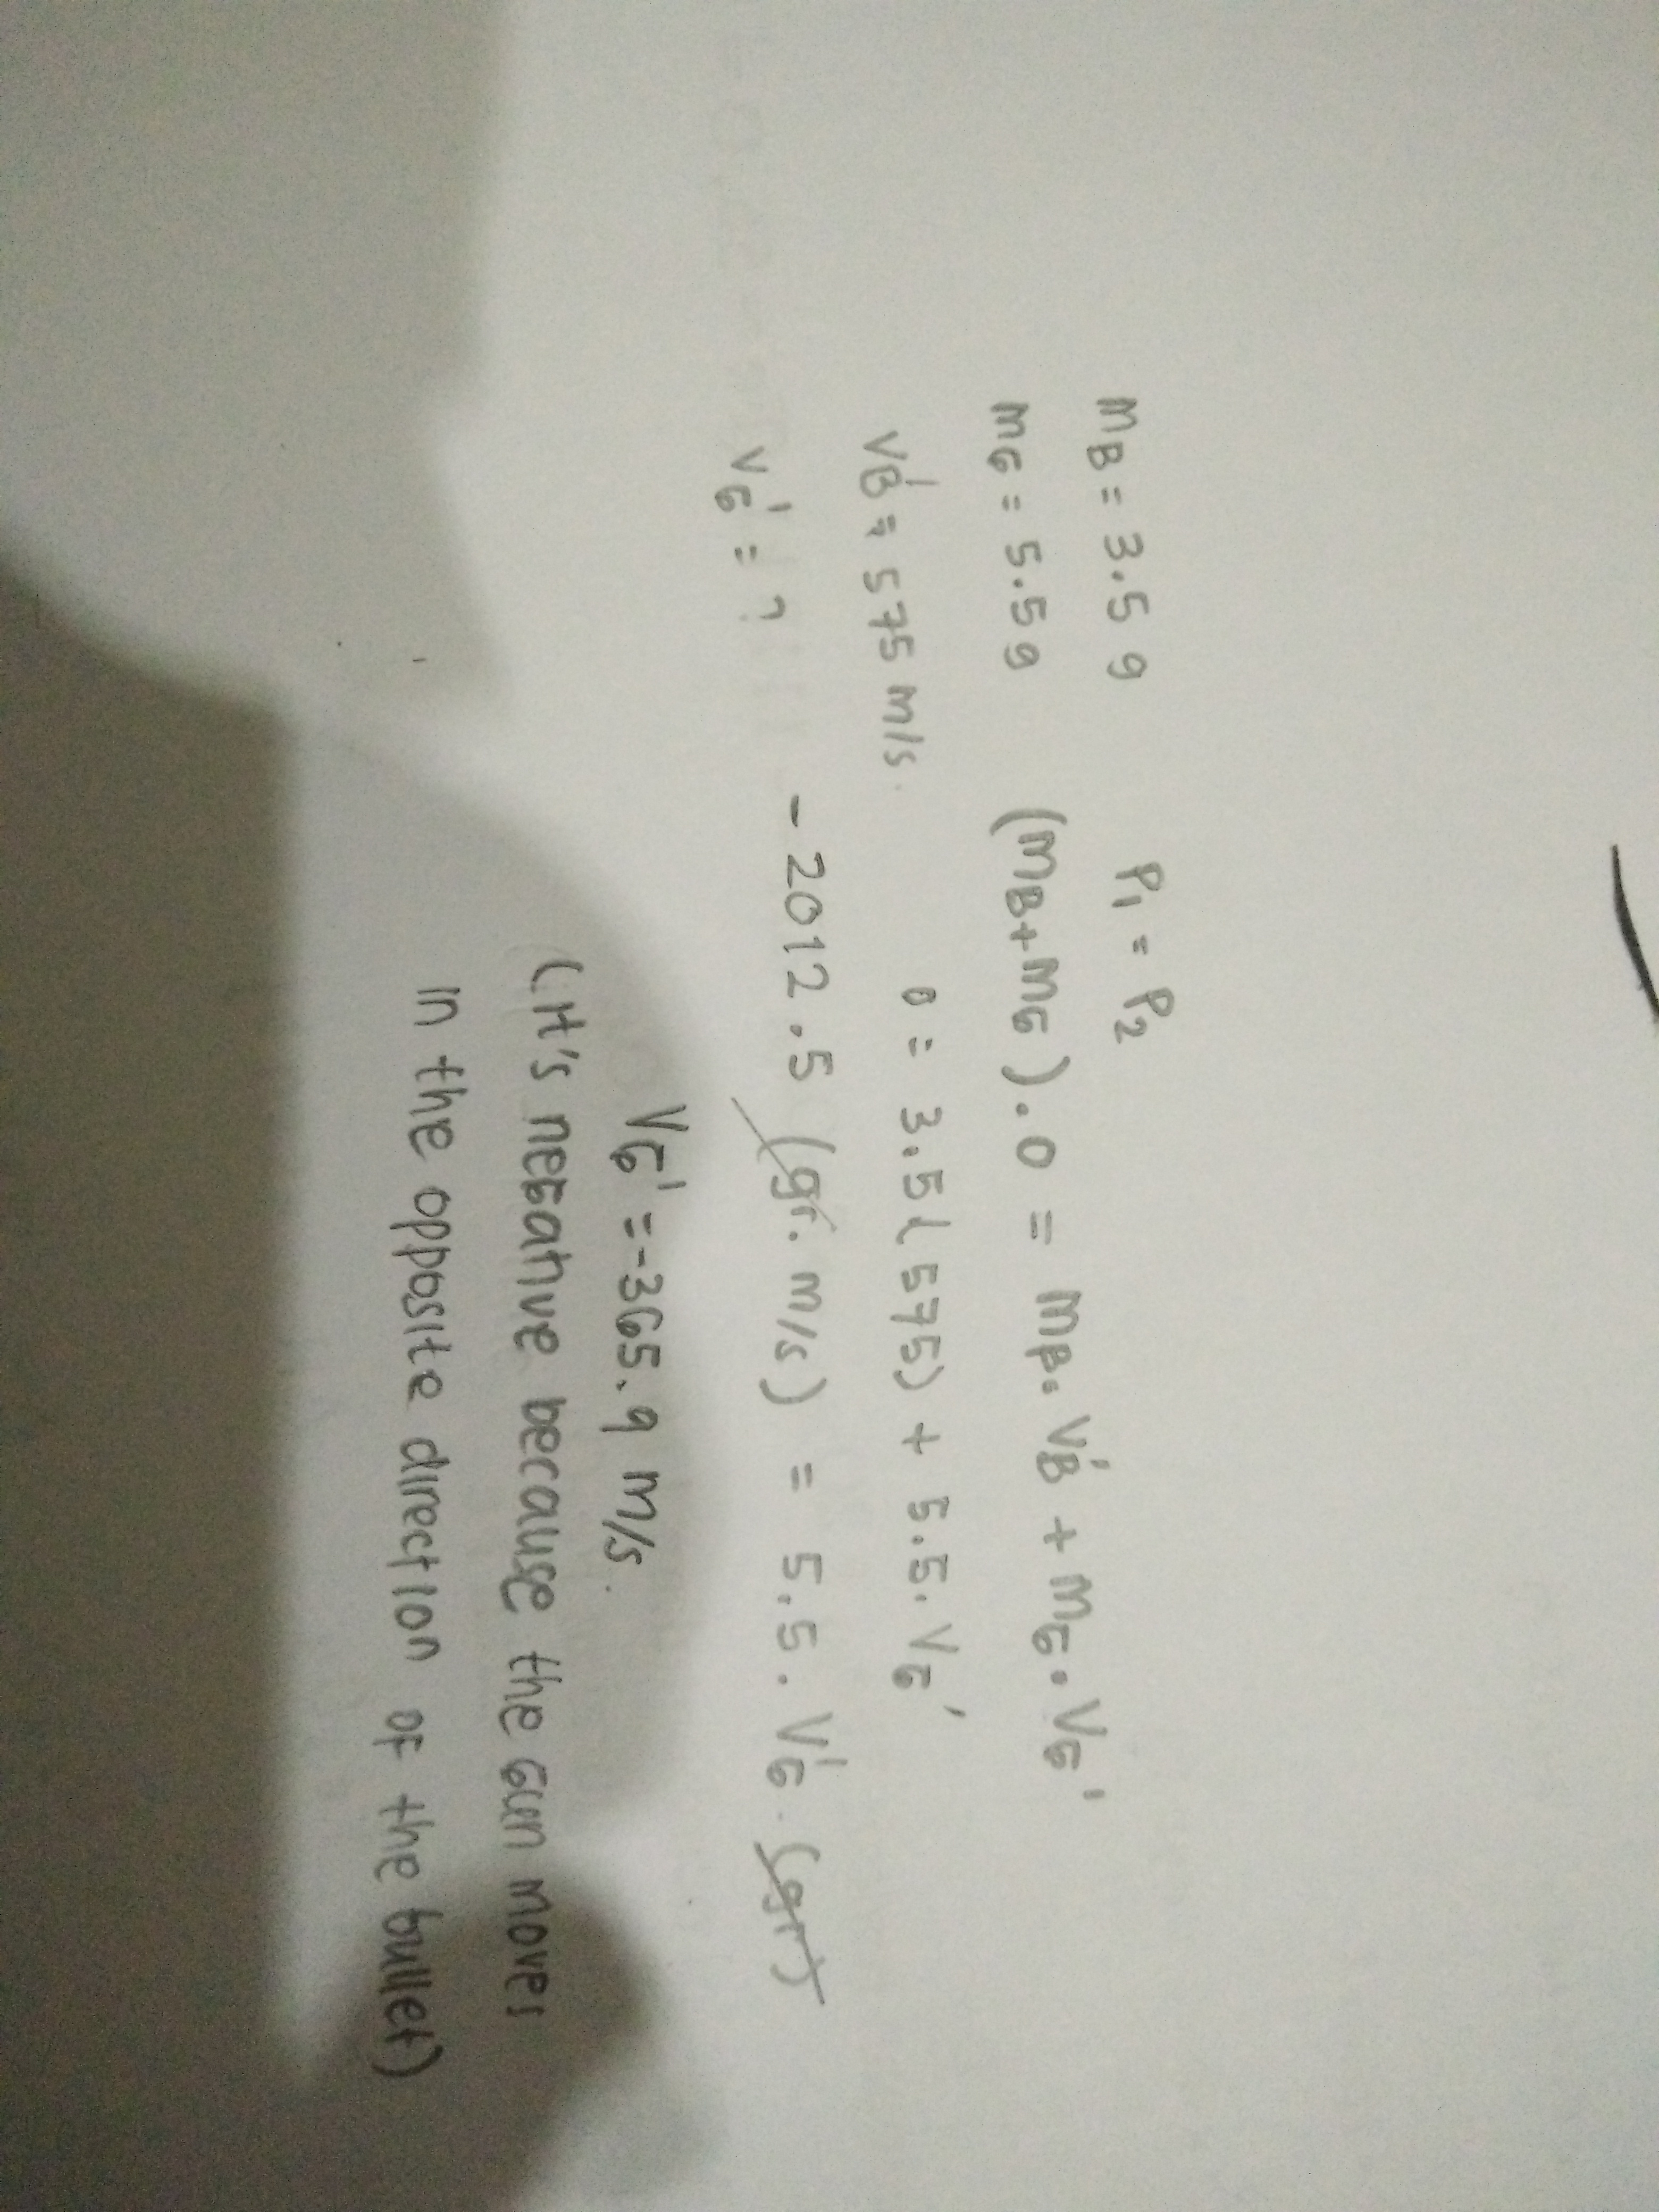 mB = 3.5 g
mG = 5.5 g
VB' = 575 m/s
VG' = ?
P1 = P2
(mB+mG).0 = mB.VB' + mG.VG'
0 = 3.5(575) + 5.5.VG'
-2012.5 (gr.m/s) = 5.5.VG' (gr)
VG' = -365.9 m/s
(It's negative because the gun moves
in the opposite direction of the bullet)